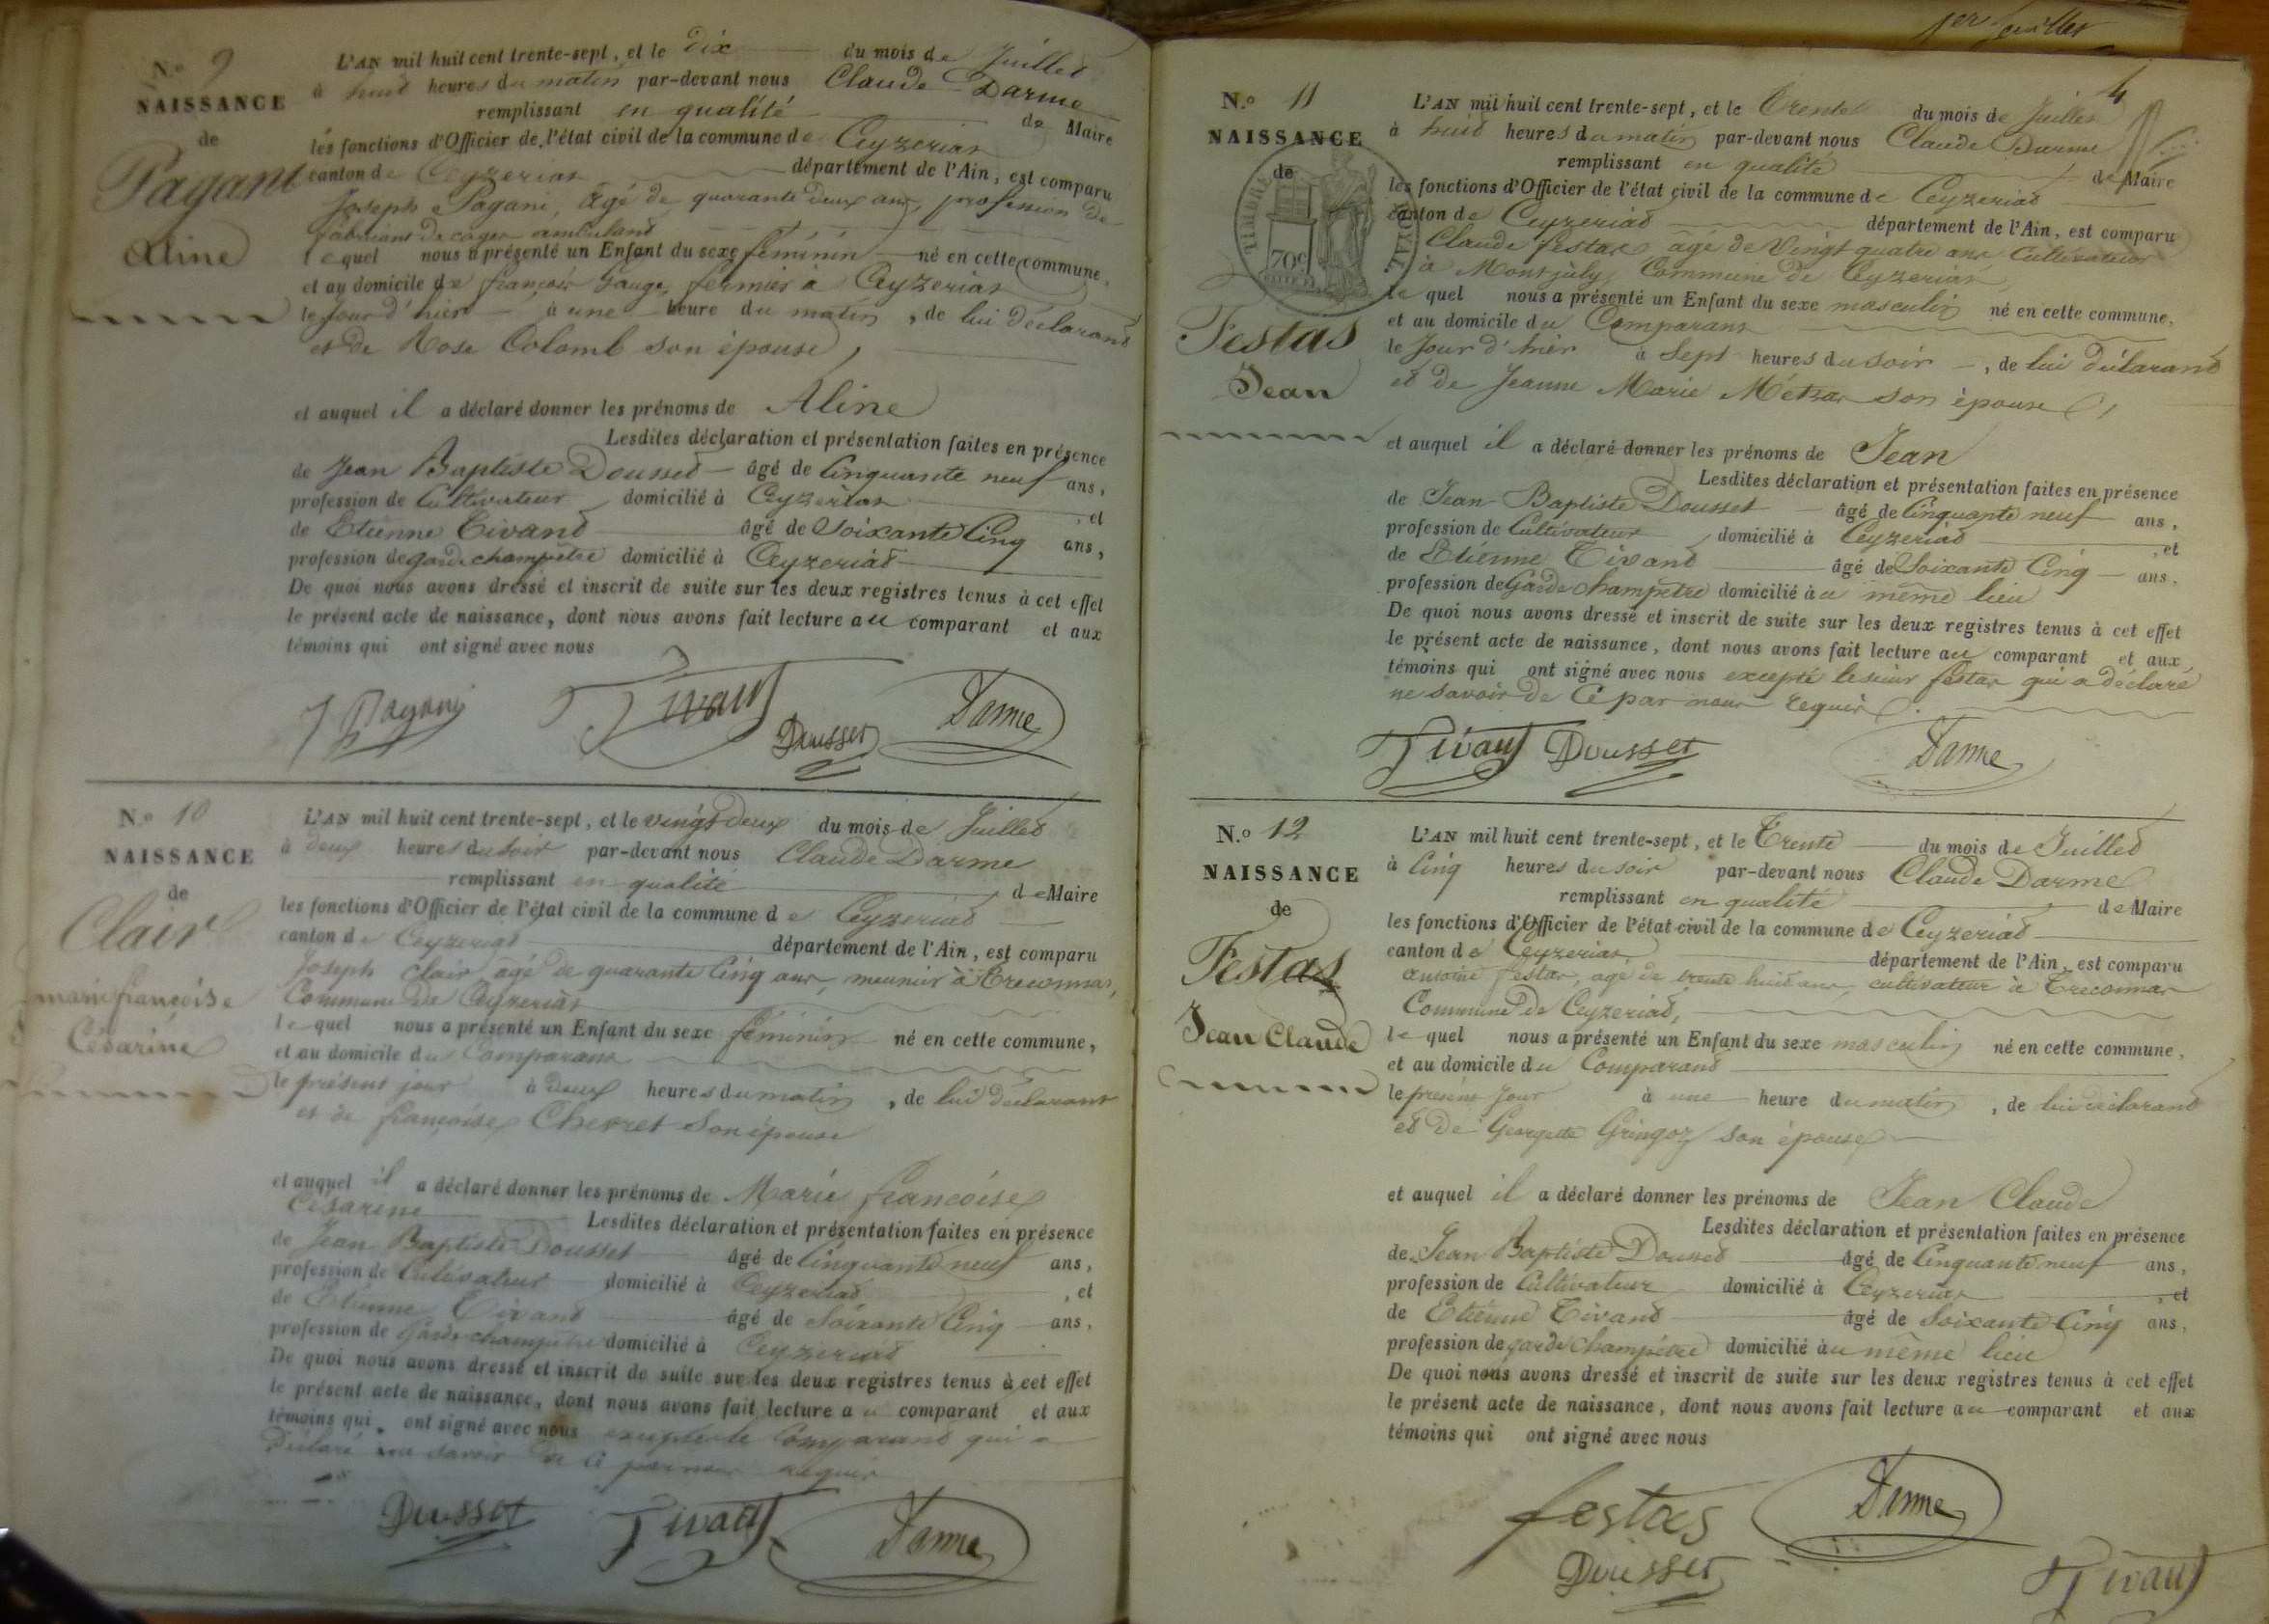 N.º 9
NAISSANCE
de
Pagani
Aline
L'AN mil huit cent trente-sept, et le dix du mois de Juillet
à huit heures du matin par-devant nous Claude Darme
remplissant en qualité de Maire
les fonctions d'Officier de l'état civil de la commune de Ceyzeriat
canton de Ceyzeriat département de l'Ain, est comparu
Joseph Pagani, âgé de quarante deux ans, profession de
fabricant de cages ambulant
lequel nous a présenté un Enfant du sexe féminin né en cette commune,
et au domicile de françois Gauge, fermier à Ceyzeriat
le Jour d'hier à une heure du matin, de lui déclarant
et de Rose Colomb son épouse,
et auquel il a déclaré donner les prénoms de Aline
Lesdites déclaration et présentation faites en présence
de Jean Baptiste Dousset âgé de Cinquante neuf ans,
profession de Cultivateur domicilié à Ceyzeriat, et
de Etienne Tivant âgé de Soixante Cinq ans,
profession de garde champêtre domicilié à Ceyzeriat
De quoi nous avons dressé et inscrit de suite sur les deux registres tenus à cet effet
le présent acte de naissance, dont nous avons fait lecture au comparant et aux
témoins qui ont signé avec nous
J Pagani Tivant Dousset Darme
N.º 10
NAISSANCE
de
Clair
marie françoise
Césarine
L'AN mil huit cent trente-sept, et le vingt deux du mois de Juillet
à deux heures du soir par-devant nous Claude Darme
remplissant en qualité de Maire
les fonctions d'Officier de l'état civil de la commune de Ceyzeriat
canton de Ceyzeriat département de l'Ain, est comparu
Joseph Clair âgé de quarante Cinq ans, meunier à Treconnas,
Commune de Ceyzeriat
lequel nous a présenté un Enfant du sexe féminin né en cette commune,
et au domicile du Comparant
le présent jour à deux heures du matin, de lui déclarant
et de françoise Chevret son épouse
et auquel il a déclaré donner les prénoms de Marie françoise
Césarine Lesdites déclaration et présentation faites en présence
de Jean Baptiste Dousset âgé de Cinquante neuf ans,
profession de Cultivateur domicilié à Ceyzeriat, et
de Etienne Tivant âgé de Soixante Cinq ans,
profession de Garde champêtre domicilié à Ceyzeriat
De quoi nous avons dressé et inscrit de suite sur les deux registres tenus à cet effet
le présent acte de naissance, dont nous avons fait lecture au comparant et aux
témoins qui ont signé avec nous excepté le Comparant qui a
déclaré ne savoir de ce par nous requis
Dousset Tivant Darme
1er Juillet
4
N.º 11
NAISSANCE
de
TIMBRE ROYAL
70c
Festas
Jean
L'AN mil huit cent trente-sept, et le Trente du mois de Juillet
à huit heures du matin par-devant nous Claude Darme
remplissant en qualité de Maire
les fonctions d'Officier de l'état civil de la commune de Ceyzeriat
canton de Ceyzeriat département de l'Ain, est comparu
Claude festas âgé de Vingt quatre ans Cultivateur
à Montjuly, Commune de Ceyzeriat,
lequel nous a présenté un Enfant du sexe masculin né en cette commune,
et au domicile du Comparant
le Jour d'hier à Sept heures du soir, de lui déclarant
et de Jeanne Marie Métras son épouse,
et auquel il a déclaré donner les prénoms de Jean
Lesdites déclaration et présentation faites en présence
de Jean Baptiste Dousset âgé de Cinquante neuf ans,
profession de Cultivateur domicilié à Ceyzeriat, et
de Etienne Tivant âgé de Soixante Cinq ans,
profession de Garde Champêtre domicilié au même lieu
De quoi nous avons dressé et inscrit de suite sur les deux registres tenus à cet effet
le présent acte de naissance, dont nous avons fait lecture au comparant et aux
témoins qui ont signé avec nous excepté le sieur festas qui a déclaré
ne savoir de Ce par nous requis.
Tivant Dousset Darme
N.º 12
NAISSANCE
de
Festas
Jean Claude
L'AN mil huit cent trente-sept, et le Trente du mois de Juillet
à Cinq heures du soir par-devant nous Claude Darme
remplissant en qualité de Maire
les fonctions d'Officier de l'état civil de la commune de Ceyzeriat
canton de Ceyzeriat département de l'Ain, est comparu
antoine festas, âgé de trente huit ans, cultivateur à Treconnas
Commune de Ceyzeriat,
lequel nous a présenté un Enfant du sexe masculin né en cette commune,
et au domicile du Comparant
le présent Jour à une heure du matin, de lui déclarant
et de Georgette Gringoz son épouse
et auquel il a déclaré donner les prénoms de Jean Claude
Lesdites déclaration et présentation faites en présence
de Jean Baptiste Dousset âgé de Cinquante neuf ans,
profession de Cultivateur domicilié à Ceyzeriat, et
de Etienne Tivant âgé de Soixante Cinq ans,
profession de garde Champêtre domicilié au même lieu
De quoi nous avons dressé et inscrit de suite sur les deux registres tenus à cet effet
le présent acte de naissance, dont nous avons fait lecture au comparant et aux
témoins qui ont signé avec nous
festas Darme
Dousset Tivant